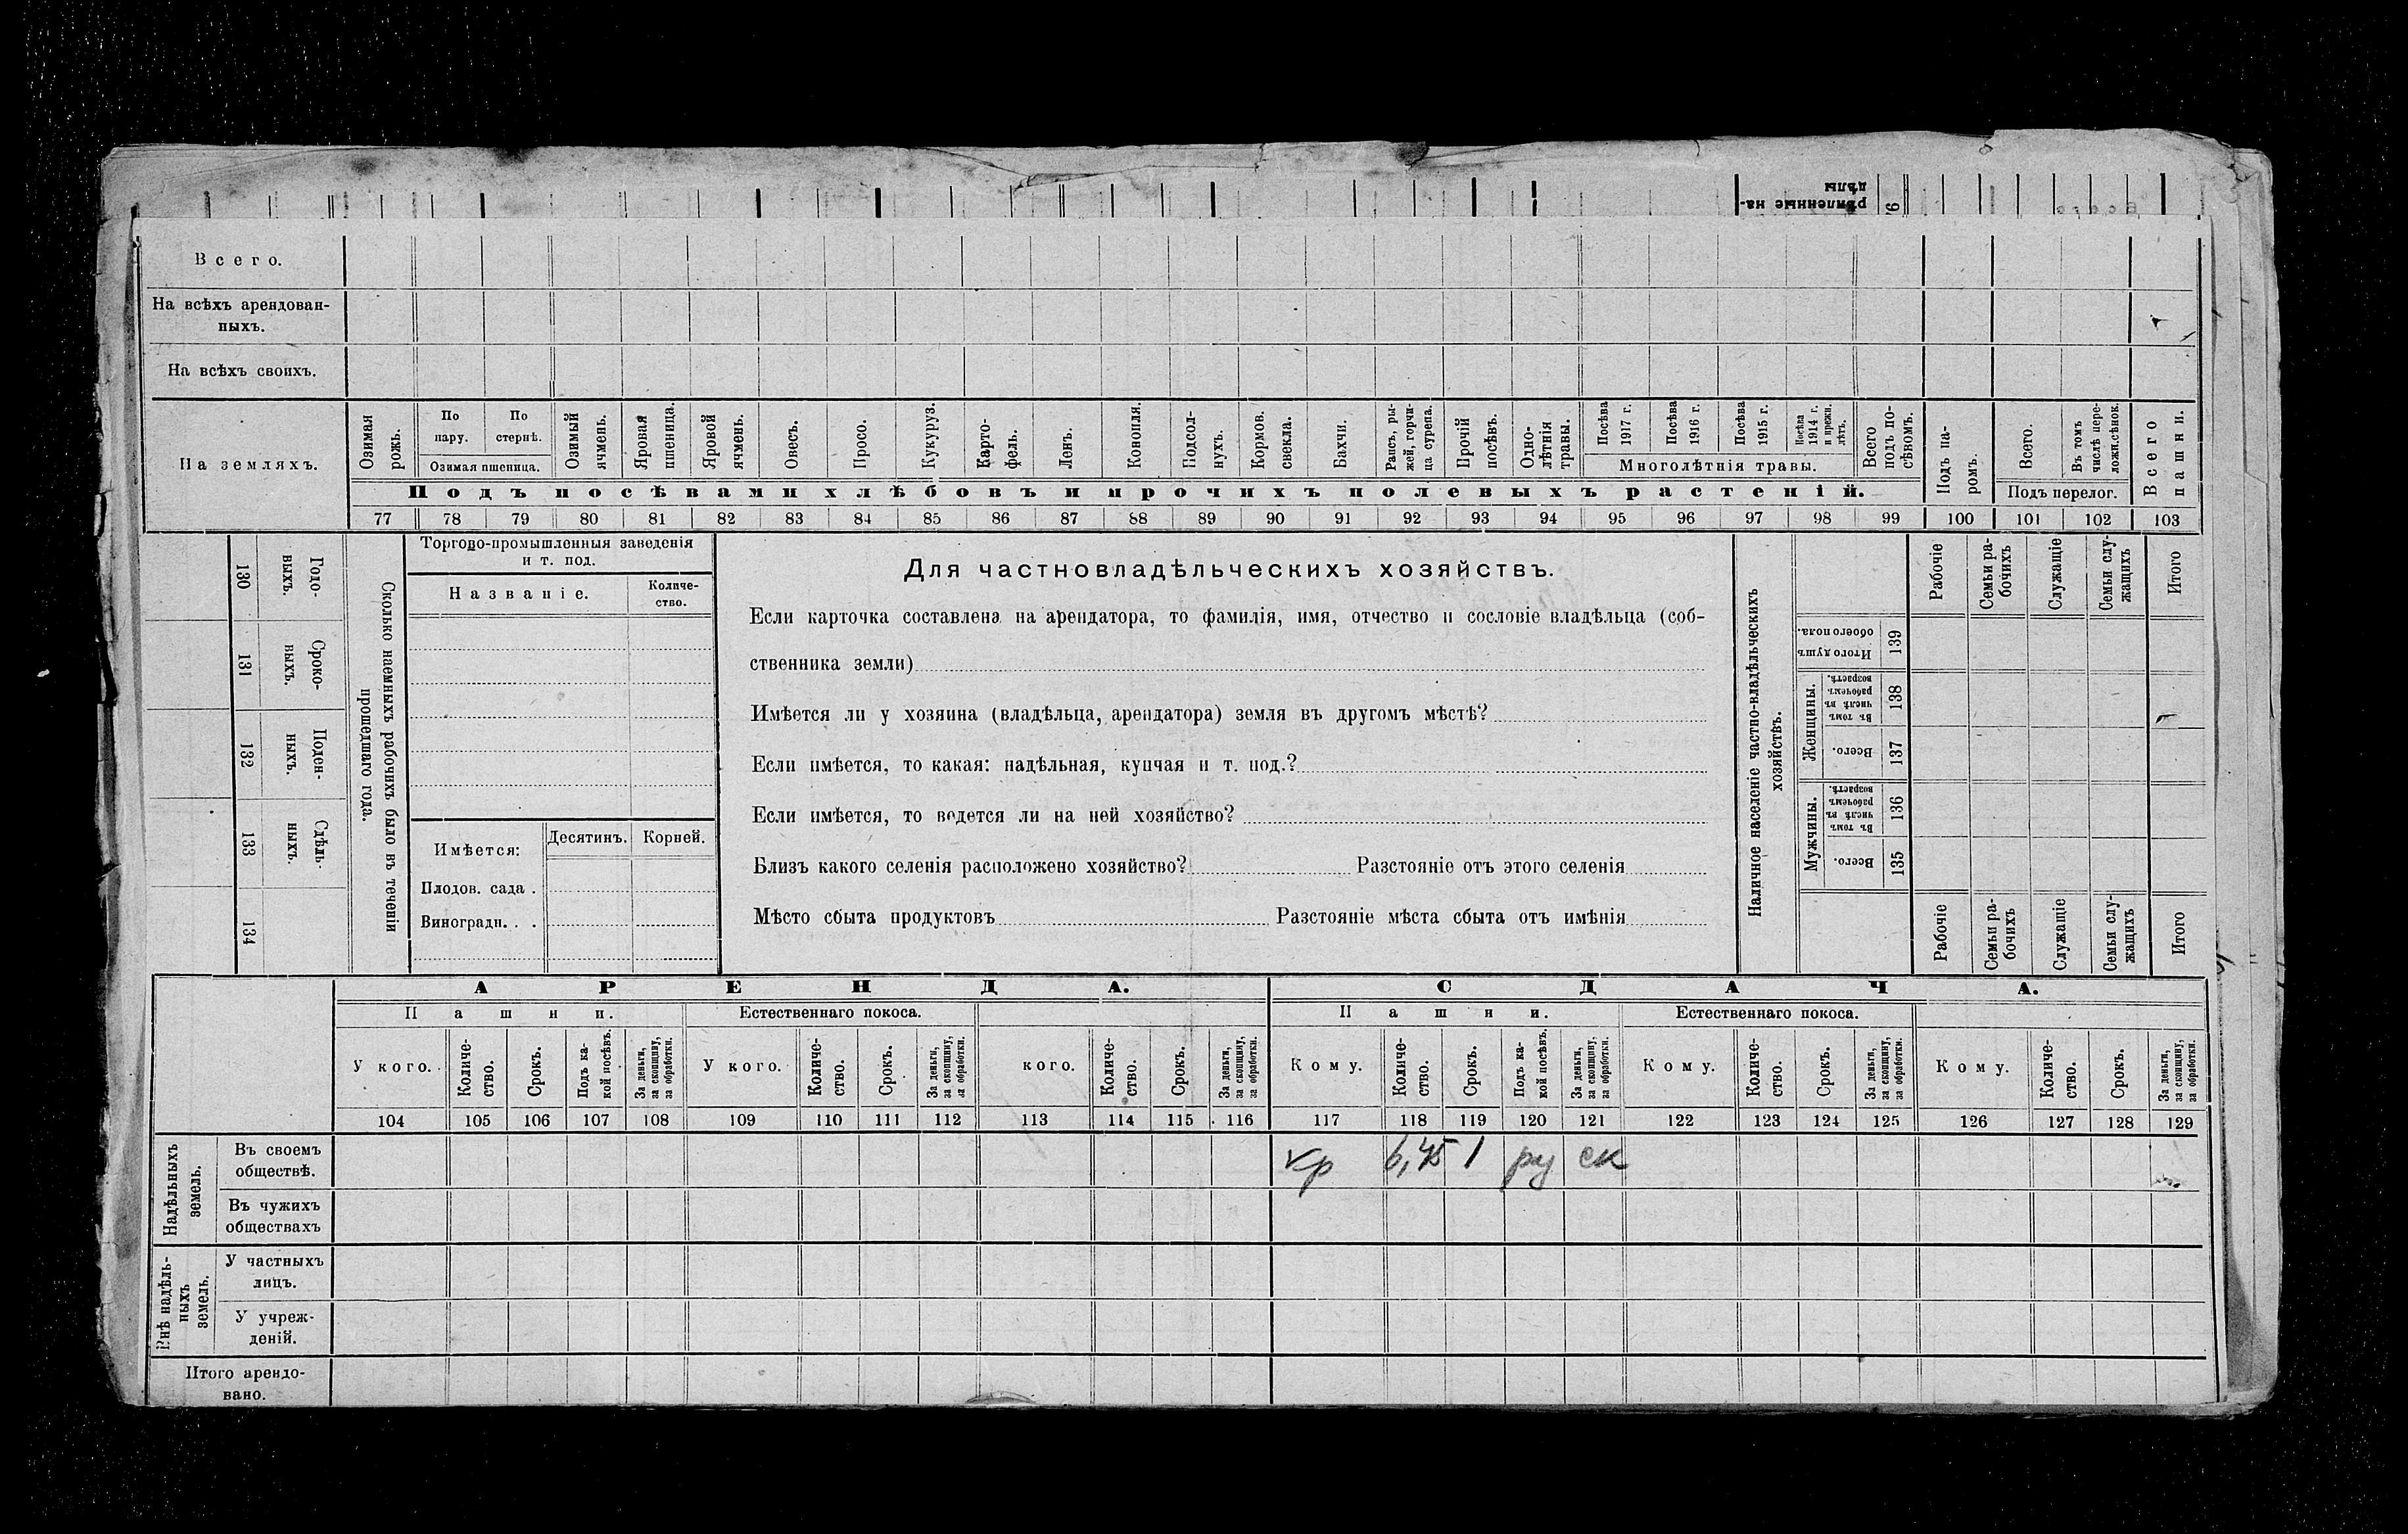 рѣпленные на-
дѣлы
76
Всего.
На всѣхъ арендован-
ныхъ.
На всѣхъ своихъ.
На земляхъ.
Озимая рожь.
По пару.
По стернѣ.
Озимая пшеница.
Озимый ячмень.
Яровая пшеница.
Яровой ячмень.
Овесъ.
Просо.
Кукуруз.
Карто-
фель.
Ленъ.
Конопля.
Подсол-
нухъ.
Кормов. свекла.
Бахчи.
Рапсъ, ры-
жей, горчи-
ца сурепа.
Прочій посѣвъ.
Одно-
лѣтнія
травы.
Посѣва 1917 г.
Посѣва 1916 г.
Посѣва 1915 г.
Посѣва 1914 г. и прежн. лѣтъ.
Многолѣтнія травы.
Всего подъ по-
сѣвомъ.
Подъ па-
ромъ.
Всего.
Въ томъ числѣ пере-
ложн.сѣнок.
Подъ перелог.
Всего пашни.
Подъ посѣвами хлѣбовъ и прочихъ полевыхъ растеній.
77 78 79 80 81 82 83 84 85 86 87 88 89 90 91 92 93 94 95 96 97 98 99 100 101 102 103
130 Годо-
выхъ.
131 Сроко-
выхъ.
132 Поден-
ныхъ.
133 Сдѣль-
ныхъ.
134
Сколько наемныхъ рабочихъ было въ теченіи
прошедшаго года.
Торгово-промышленныя заведенія
и т. под.
Названіе.
Количе-
ство.
Имѣется:
Десятинъ.
Корней.
Плодов. сада .
Виноградн. . .
Для частновладѣльческихъ хозяйствъ.
Если карточка составлена на арендатора, то фамилія, имя, отчество и сословіе владѣльца (соб-
ственника земли)
Имѣется ли у хозяина (владѣльца, арендатора) земля въ другомъ мѣстѣ?
Если имѣется, то какая: надѣльная, купчая и т. под.?
Если имѣется, то ведется ли на ней хозяйство?
Близъ какого селенія расположено хозяйство? Разстояніе отъ этого селенія
Мѣсто сбыта продуктовъ Разстояніе мѣста сбыта отъ имѣнія
Наличное населеніе частно-владѣльческихъ
хозяйствъ.
Рабочіе
Семьи ра-
бочихъ
Служащіе
Семьи слу-
жащихъ
Итого
Итого душъ
обоего пола.
139
Женщины.
Въ томъ числѣ въ рабочемъ возрастѣ.
138
Всего.
137
Мужчины.
Въ томъ числѣ въ рабочемъ возрастѣ.
136
Всего.
135
Рабочіе
Семьи ра-
бочихъ
Служащіе
Семьи слу-
жащихъ
Итого
АРЕНДА.
СДАЧА.
Пашни.
Естественнаго покоса.
Пашни.
Естественнаго покоса.
У кого.
Количе-
ство.
Срокъ.
Подъ ка-
кой посѣвъ.
За деньги,
за скопщину,
за обработки.
У кого.
Количе-
ство.
Срокъ.
За деньги,
за скопщину,
за обработки.
кого.
Количе-
ство.
Срокъ.
За деньги,
за скопщину,
за обработки.
Кому.
Количе-
ство.
Срокъ.
Подъ ка-
кой посѣвъ.
За деньги,
за скопщину,
за обработки.
Кому.
Количе-
ство.
Срокъ.
За деньги,
за скопщину,
за обработки.
Кому.
Количе-
ство.
Срокъ.
За деньги,
за скопщину,
за обработки.
104 105 106 107 108 109 110 111 112 113 114 115 116 117 118 119 120 121 122 123 124 125 126 127 128 129
Надѣльныхъ
земель.
Въ своемъ
обществѣ.
кр 6,45 1 ру ск
Въ чужихъ
обществахъ
Внѣ надѣль-
ныхъ
земель.
У частныхъ
лицъ.
У учреж-
деній.
Итого арендо-
вано.